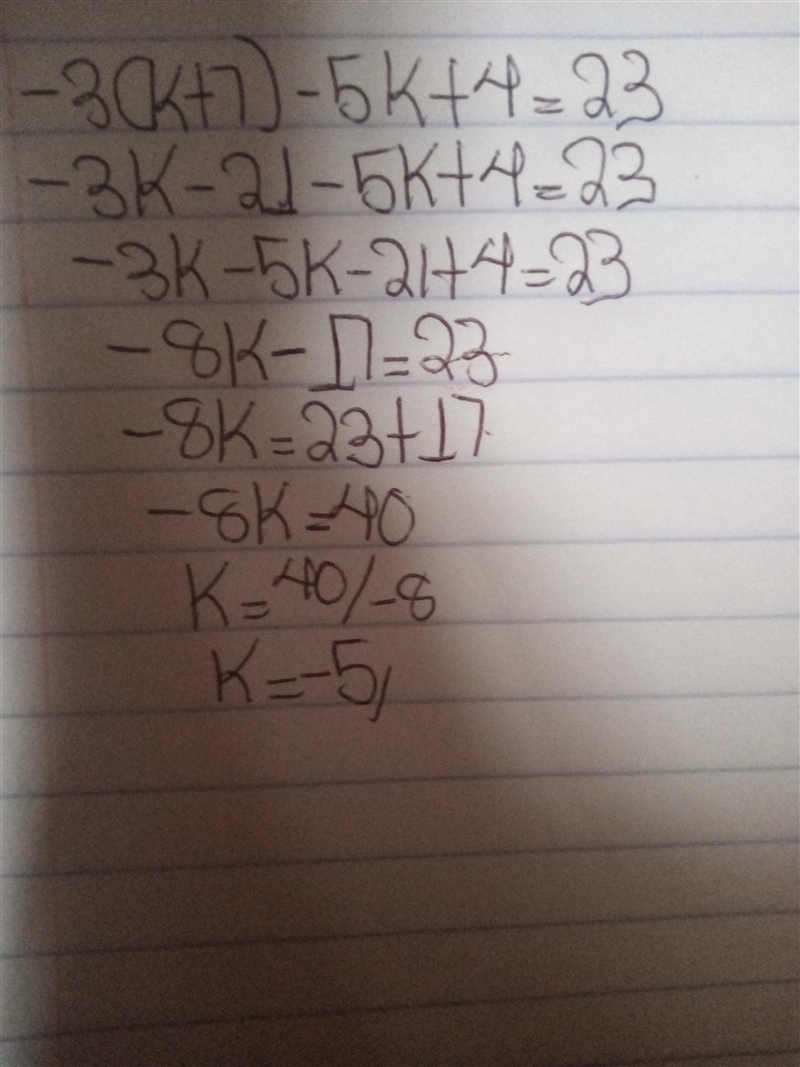 -3(K+7)-5K+4=23
-3K-21-5K+4=23
-3K-5K-21+4=23
-8K-17=23
-8K=23+17
-8K=40
K=40/-8
K=-5/